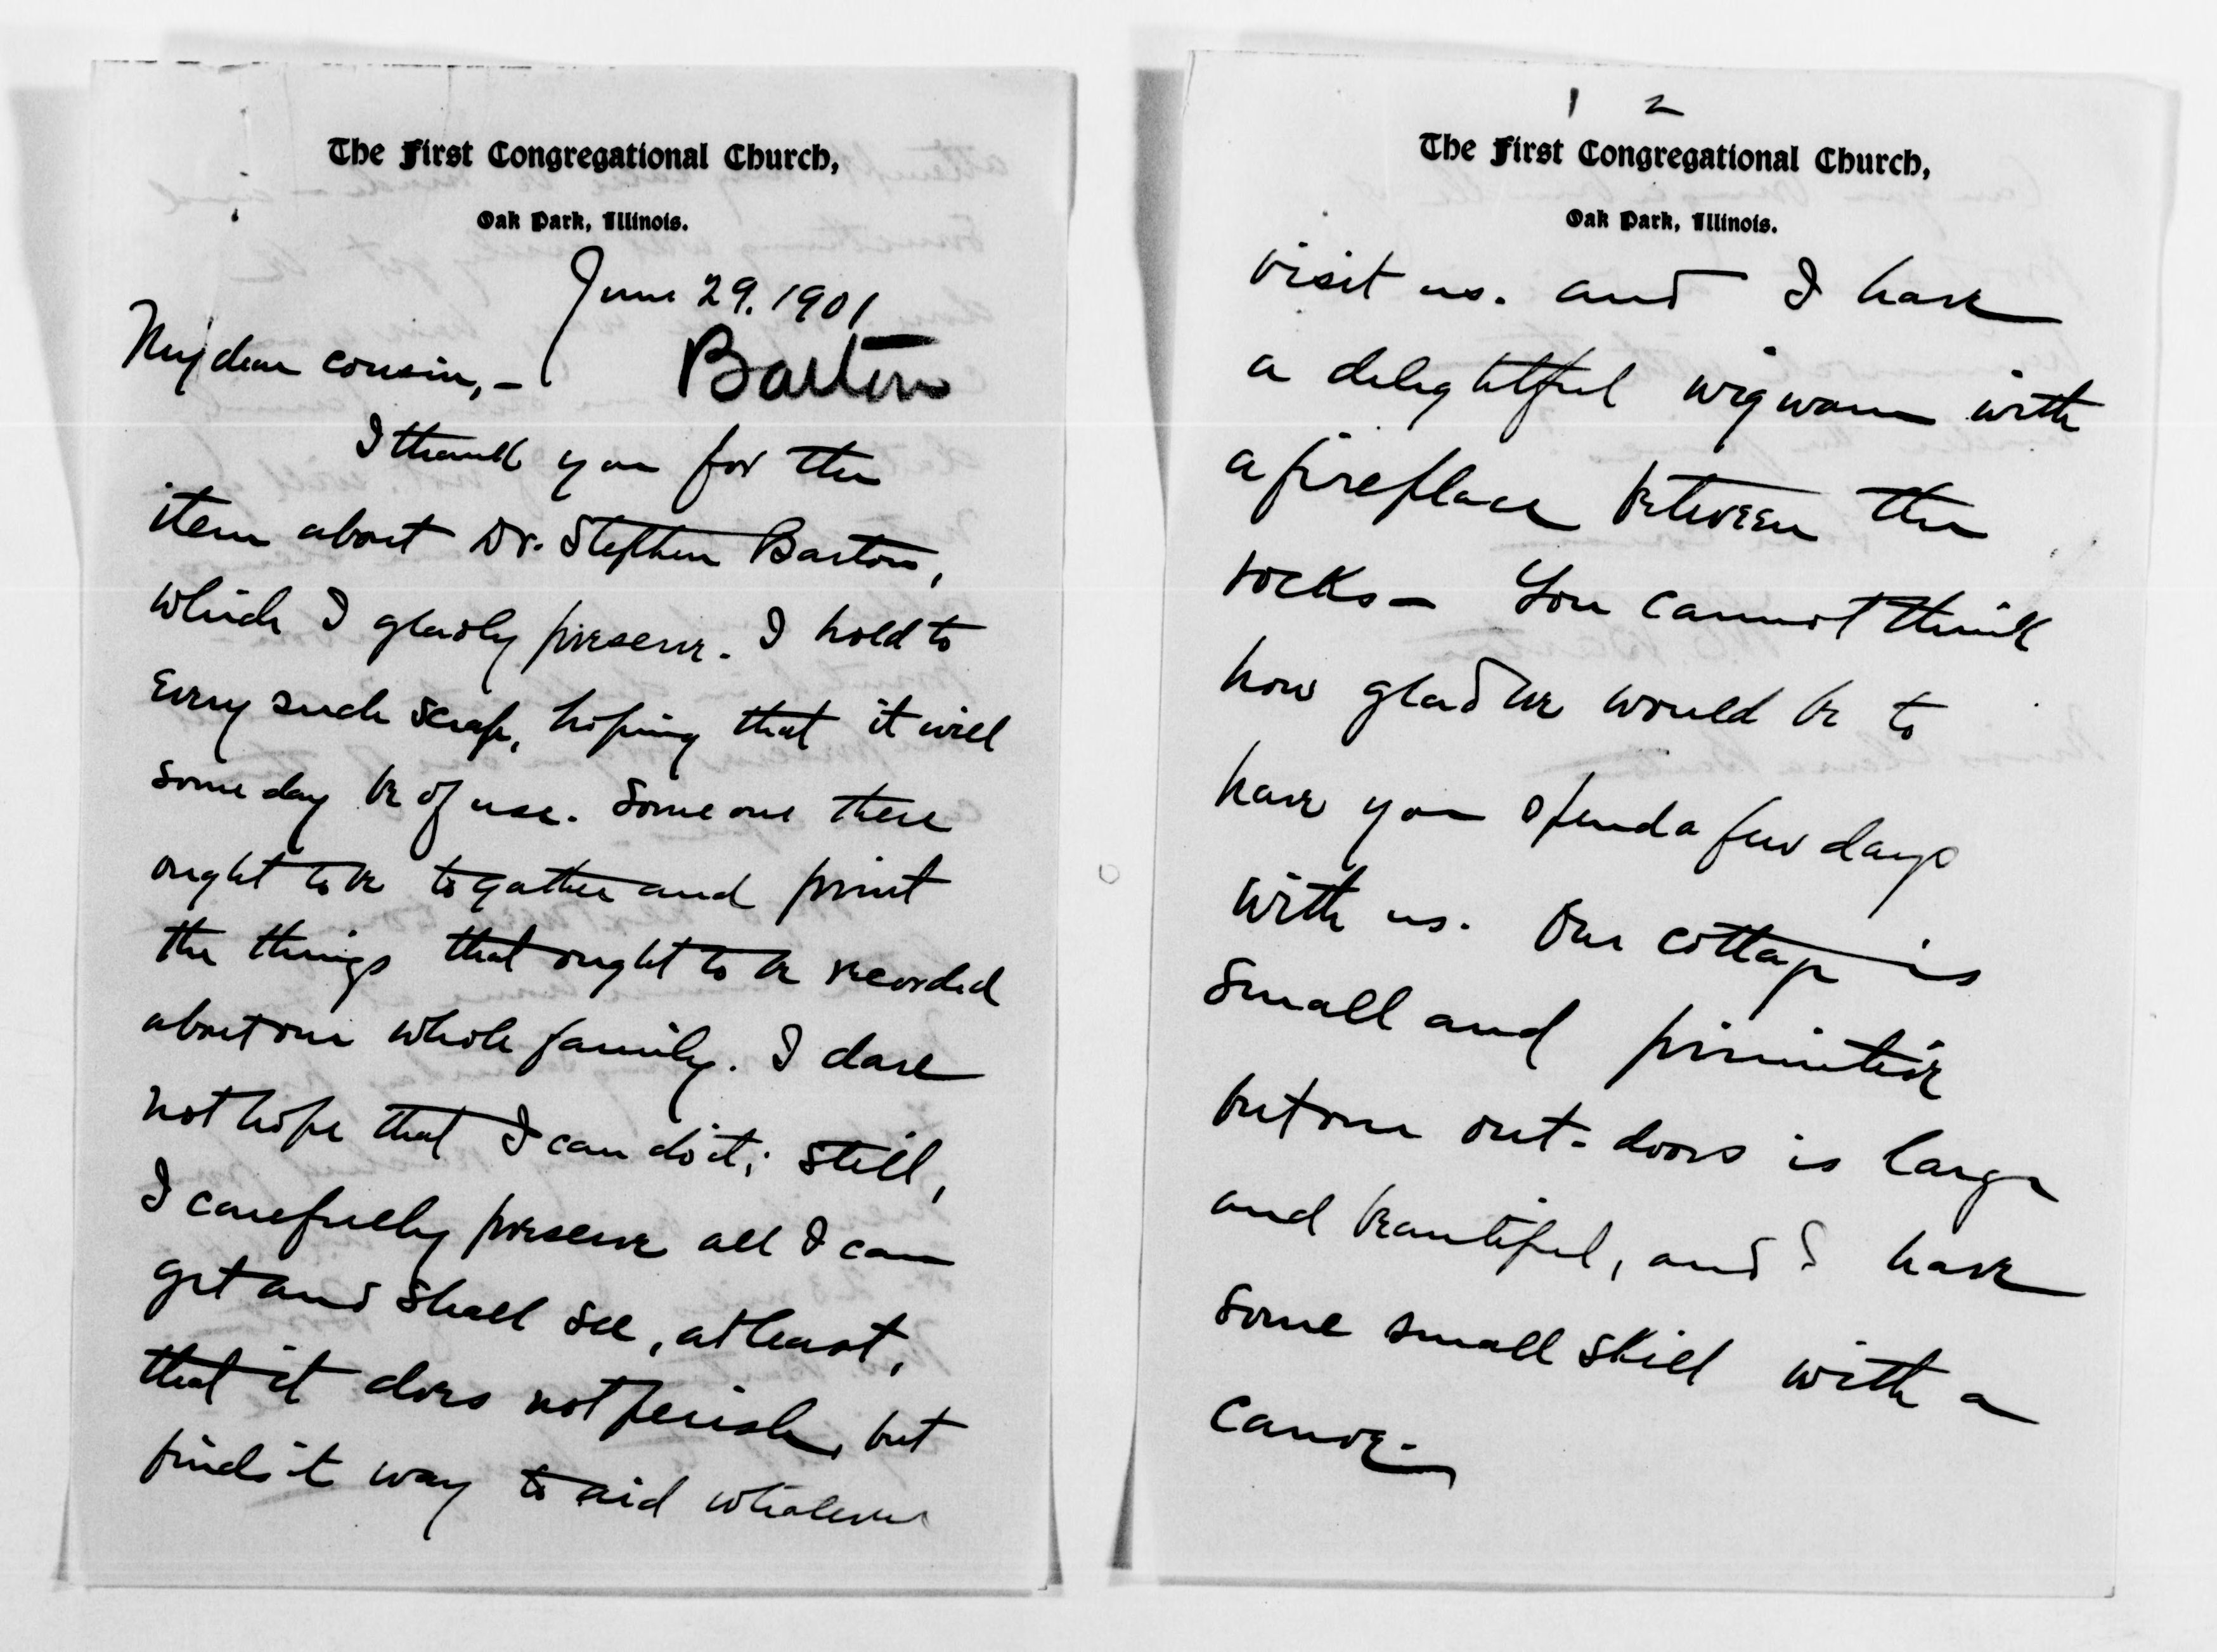 The First Congregational Church,
Oak Park, Illinois.
June 29. 1901
My dear cousin,—
Barton
I thank you for the
item about Dr. Stephen Barton,
which I gladly preserve. I hold to
every such scrap, hoping that it will
some day be of use. Some one there
ought to be to gather and print
the things that ought to be recorded
about our whole family. I dare
not hope that I can do it; still,
I carefully preserve all I can
get and shall see, at least,
that it does not perish, but
finds it way to aid whatever
1 2
The First Congregational Church,
Oak Park, Illinois.
visit us. and I have
a delightful wigwam with
a fireplace between the
rocks— You cannot think
how glad we would be to
have you spend a few days
with us. Our cottage is
small and primitive
but our out-doors is large
and beautiful, and I have
some small skill with a
canoe.